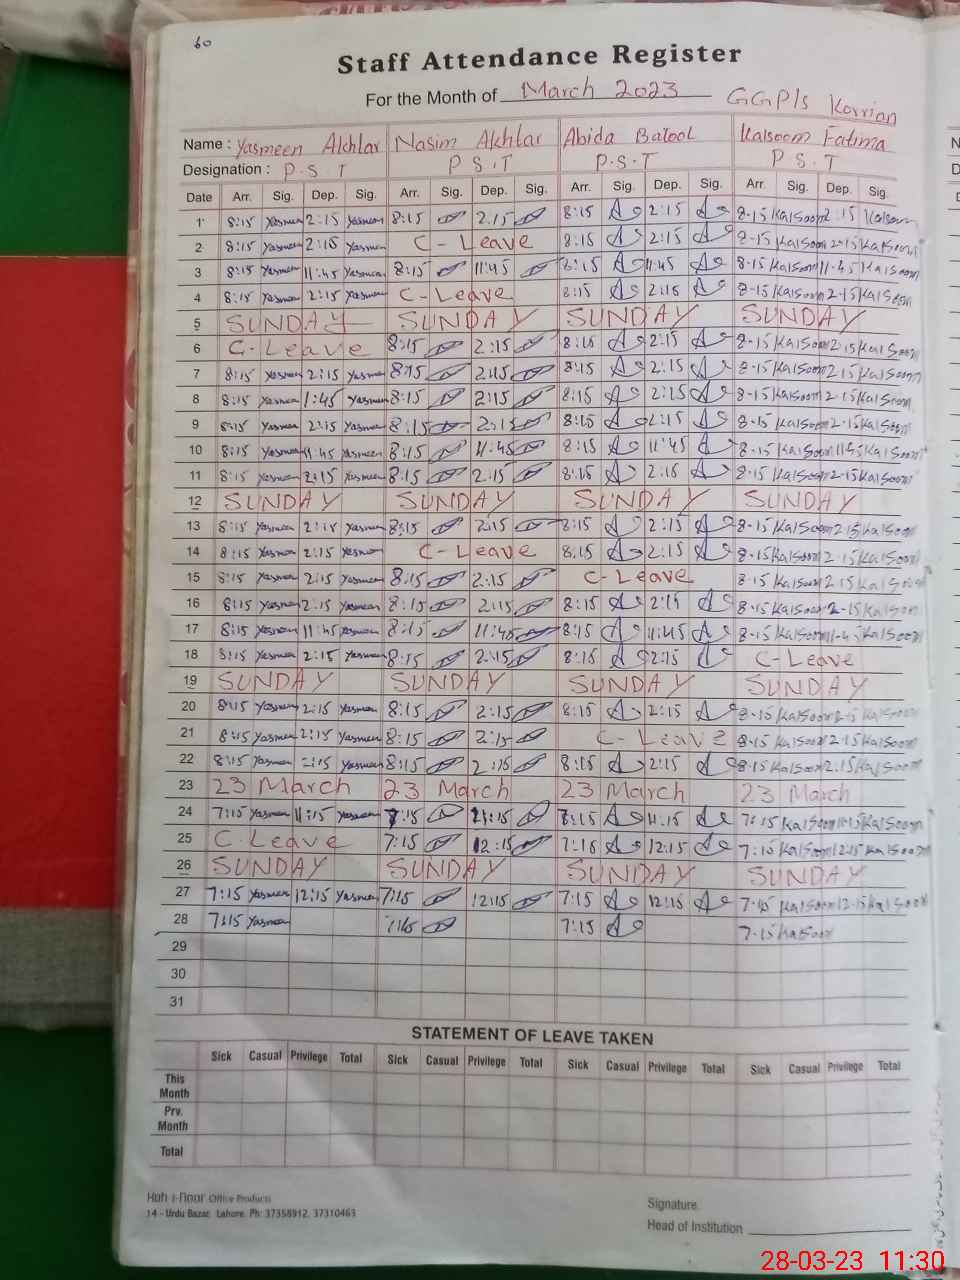 60
Staff Attendance Register
For the Month of March 2023 GGP/s Korrian
Name : Yasmeen Akhtar Nasim Akhtar Abida Batool Kalsoom Fatima
Designation : P.S.T P.S.T P.S.T P.S.T
Date Arr. Sig. Dep. Sig. Arr. Sig. Dep. Sig. Arr. Sig. Dep. Sig. Arr. Sig. Dep. Sig.
1 8:15 Yasmeen 2:15 Yasmeen 8:15 2:15 8:15 2:15 8-15 Kalsoom 2:15 Kalsoom
2 8:15 Yasmeen 2:15 Yasmeen C-Leave 8:15 2:15 8-15 Kalsoom 2-15 Kalsoom
3 8:15 Yasmeen 11:45 Yasmeen 8:15 11:45 8:15 11:45 8-15 Kalsoom 11-45 Kalsoom
4 8:15 Yasmeen 2:15 Yasmeen C-Leave 8:15 2:15 8-15 Kalsoom 2-15 Kalsoom
5 SUNDAY SUNDAY SUNDAY SUNDAY
6 C-Leave 8:15 2:15 8:15 2:15 8-15 Kalsoom 2:15 Kalsoom
7 8:15 Yasmeen 2:15 Yasmeen 8:15 2:15 8:15 2:15 8-15 Kalsoom 2:15 Kalsoom
8 8:15 Yasmeen 1:45 Yasmeen 8:15 2:15 8:15 2:15 8-15 Kalsoom 2-15 Kalsoom
9 8:15 Yasmeen 2:15 Yasmeen 8:15 2:15 8:15 2:15 8-15 Kalsoom 2-15 Kalsoom
10 8:15 Yasmeen 11:45 Yasmeen 8:15 11:45 8:15 11:45 8-15 Kalsoom 11-45 Kalsoom
11 8:15 Yasmeen 2:15 Yasmeen 8:15 2:15 8:15 2:15 8-15 Kalsoom 2-15 Kalsoom
12 SUNDAY SUNDAY SUNDAY SUNDAY
13 8:15 Yasmeen 2:15 Yasmeen 8:15 2:15 8:15 2:15 8-15 Kalsoom 2:15 Kalsoom
14 8:15 Yasmeen 2:15 Yasmeen C-Leave 8:15 2:15 8-15 Kalsoom 2-15 Kalsoom
15 8:15 Yasmeen 2:15 Yasmeen 8:15 2:15 C-Leave 8-15 Kalsoom 2-15 Kalsoom
16 8:15 Yasmeen 2:15 Yasmeen 8:15 2:15 8:15 2:15 8-15 Kalsoom 2-15 Kalsoom
17 8:15 Yasmeen 11:45 Yasmeen 8:15 11:45 8:15 11:45 8-15 Kalsoom 11-45 Kalsoom
18 8:15 Yasmeen 2:15 Yasmeen 8:15 2:15 8:15 2:15 C-Leave
19 SUNDAY SUNDAY SUNDAY SUNDAY
20 8:15 Yasmeen 2:15 Yasmeen 8:15 2:15 8:15 2:15 8-15 Kalsoom 2-15 Kalsoom
21 8:15 Yasmeen 2:15 Yasmeen 8:15 2:15 C-Leave 8-15 Kalsoom 2-15 Kalsoom
22 8:15 Yasmeen 2:15 Yasmeen 8:15 2:15 8:15 2:15 8-15 Kalsoom 2:15 Kalsoom
23 23 March 23 March 23 March 23 March
24 7:15 Yasmeen 11:15 Yasmeen 7:15 11:15 7:15 11:15 7:15 Kalsoom 11-15 Kalsoom
25 C Leave 7:15 12:15 7:15 12:15 7:15 Kalsoom 12:15 Kalsoom
26 SUNDAY SUNDAY SUNDAY SUNDAY
27 7:15 Yasmeen 12:15 Yasmeen 7:15 12:15 7:15 12:15 7-15 Kalsoom 12-15 Kalsoom
28 7:15 Yasmeen 7:15 7:15 7-15 Kalsoom
29
30
31
STATEMENT OF LEAVE TAKEN
Sick Casual Privilege Total Sick Casual Privilege Total Sick Casual Privilege Total Sick Casual Privilege Total
This Month
Prv. Month
Total
Huh-i-Noor Office Products
14 - Urdu Bazar, Lahore. Ph: 37358912, 37310463
Signature
Head of Institution
28-03-23 11:30